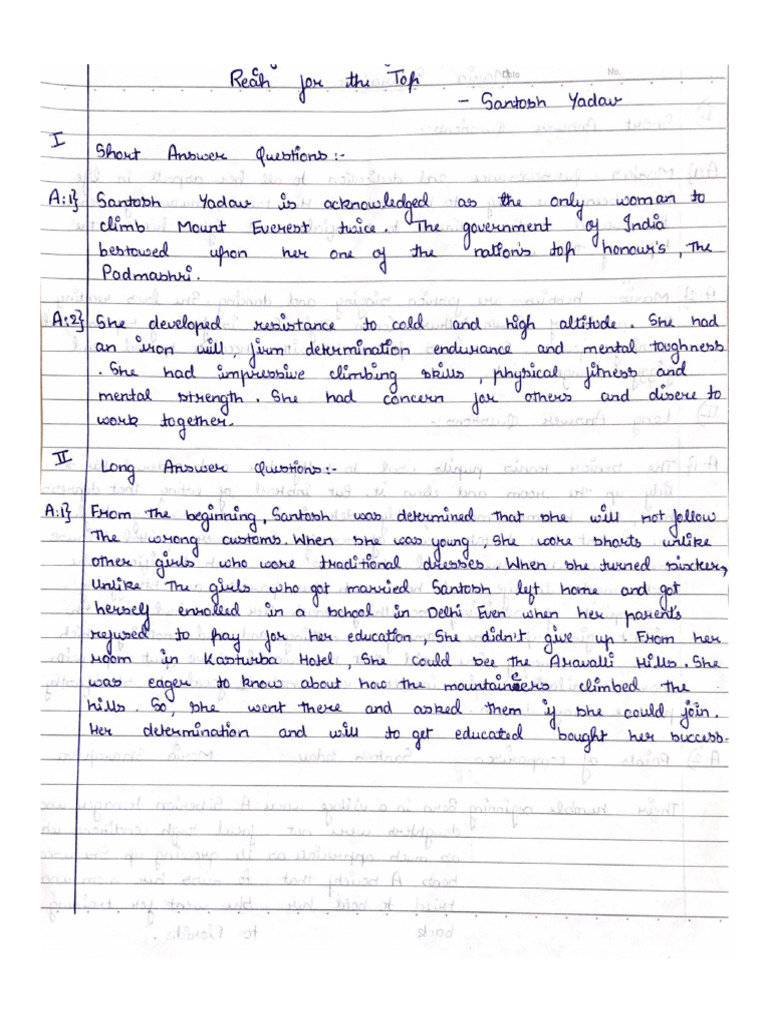 Reach for the Top
Date No.
- Santosh Yadav
I Short Answer Questions:-
A:1} Santosh Yadav is acknowledged as the only woman to
climb Mount Everest twice. The government of India
bestowed upon her one of the nation's top honour's, The
Padmashri.
A:2} She developed resistance to cold and high altitude. She had
an iron will, firm determination endurance and mental toughness
. She had impressive climbing skills, physical fitness and
mental strength. She had concern for others and disere to
work together.
II Long Answer Questions:-
A:1} From The beginning, Santosh was determined that she will not follow
The wrong customs. When she was young, She wore shorts unlike
other girls who wore traditional dresses. When she turned sixteen,
Unlike The girls who got married Santosh left home and got
herself enrolled in a school in Delhi Even when her parent's
refused to pay for her education, She didn't give up. From her
room in Kasturba Hotel, She could see the Aravalli Hills. She
was eager to know about how the mountaineers climbed the
hills. So, she went there and asked them if she could join.
Her determination and will to get educated bought her success.